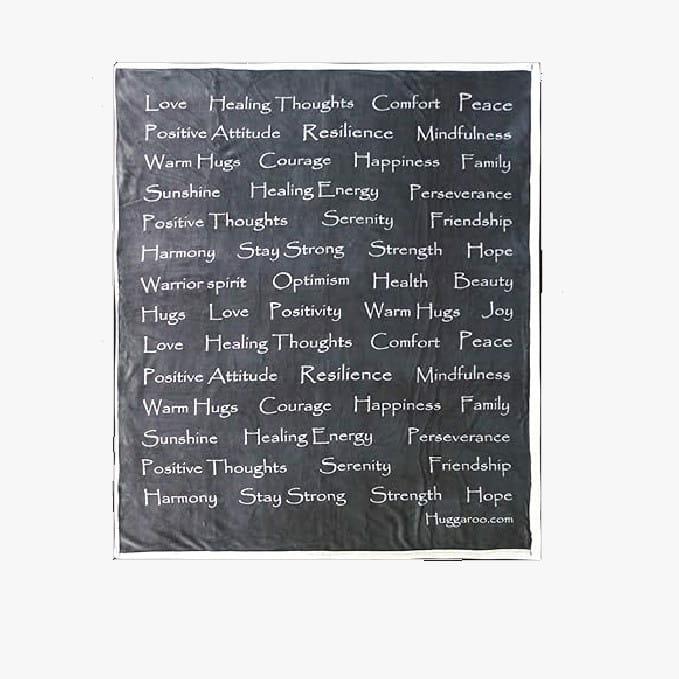 Love Healing Thoughts Comfort Peace
Positive Attitude Resilience Mindfulness
Warm Hugs Courage Happiness Family
Sunshine Healing Energy Perseverance
Positive Thoughts Serenity Friendship
Harmony Stay Strong Strength Hope
Warrior spirit Optimism Health Beauty
Hugs Love Positivity Warm Hugs Joy
Love Healing Thoughts Comfort Peace
Positive Attitude Resilience Mindfulness
Warm Hugs Courage Happiness Family
Sunshine Healing Energy Perseverance
Positive Thoughts Serenity Friendship
Harmony Stay Strong Strength Hope
Huggaroo.com